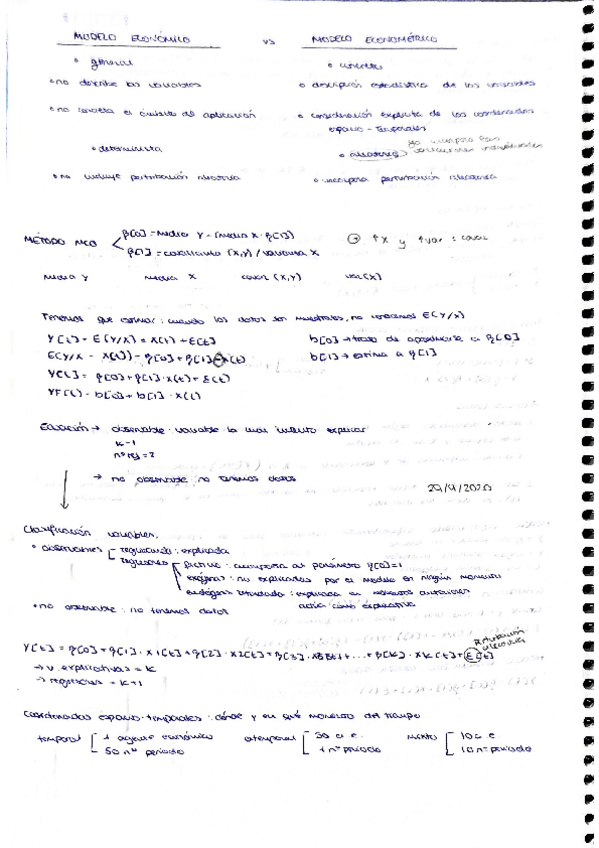 MODELO ECONÓMICO vs MODELO ECONOMÉTRICO
• general • concreto
• no describe las variables • descripción estadística de las variables
• no concreta el ámbito de aplicación • consideración explícita de las coordenadas
espacio-temporales
• determinista • aleatorio
• no incluye perturbación aleatoria • incorpora perturbación aleatoria
MÉTODO MCO β[0] = media Y - (media X · β[1])
β[1] = covarianza (X,Y) / varianza X
↑X y ↑var : covar
media Y media X covar (X,Y) var(X)
Tenemos que estimar: cuando los datos son muestrales, no conocemos E(Y/X)
Y[t] = E(Y/X) = X(t) + E[t] b[0] → trata de aproximarse a β[0]
b[1] → estima a β[1]
Y[t] = β[0] + β[1] · X(t) + E(t)
YF(t) = b[0] + b[1] · X(t)
Ecuación → observable: variable la cual intento explicar
K-1
nº reg = 2
→ no observable: no tenemos datos
29/9/2020
Clasificación variables,
• observables regresando: explicada
regresores ficticia: acompaña al parámetro β[0]=1
exógena: no explicadas por el modelo en ningún momento
endógena retardada: explicada en momentos anteriores
actúa como explicativa
• no observable: no tenemos datos
Perturbación
aleatoria
Y[t] = β[0] + β[1] · X1[t] + β[2] · X2[t] + β[3] · X3[t] + ... + β[K] · XK[t] + E[t]
→ v. explicativas = K
→ regresores = K+1
Coordenadas espacio-temporales: dónde y en qué momento del tiempo
temporal 1 agente económico atemporal 30 a. e. mixto 10 a. e.
50 nº periodo 1 nº periodo 10 nº periodo